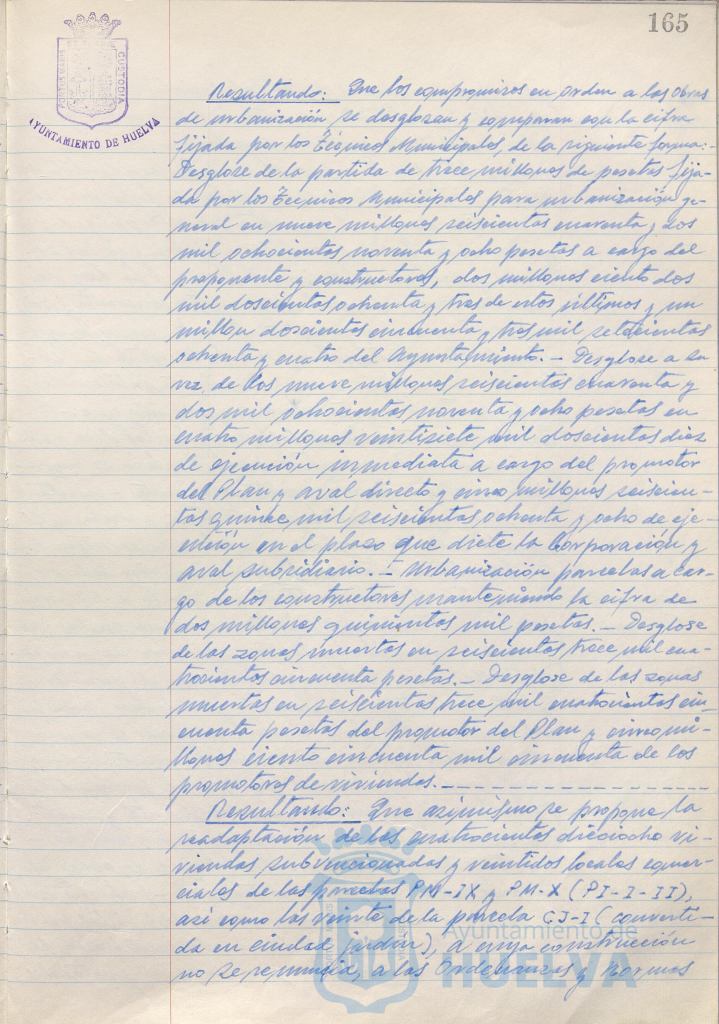 165
PORTUS MARIS CUSTODIA
AYUNTAMIENTO DE HUELVA
Resultando: Que los compromisos en orden a las obras
de urbanización se desglosan y comparan con la cifra
fijada por los Técnicos Municipales, de la siguiente forma:
Desglose de la partida de trece millones de pesetas fija-
da por los Técnicos Municipales para urbanización ge-
neral en nueve millones seiscientas cuarenta y dos
mil ochocientas noventa y ocho pesetas a cargo del
proponente y constructores, dos millones ciento dos
mil doscientas ochenta y tres de estos últimos y un
millon doscientas cincuenta y tres mil setecientas
ochenta y cuatro del Ayuntamiento.- Desglose a su
vez de los nueve millones seiscientas cuarenta y
dos mil ochocientas noventa y ocho pesetas en
cuatro millones veintisiete mil doscientas diez
de ejecución inmediata a cargo del promotor
del Plan y aval directo y cinco millones seiscien-
tas quince mil seiscientas ochenta y ocho de eje-
cución en el plazo que dicte la Corporación y
aval subsidiario.- Urbanización parcelas a car-
go de los constructores manteniendo la cifra de
dos millones quinientas mil pesetas.- Desglose
de las zonas muertas en seiscientas trece mil cua-
trocientas cincuenta pesetas.- Desglose de las zonas
muertas en seiscientas trece mil cuatrocientas cin-
cuenta pesetas del promotor del Plan y cinco mi-
llones ciento cincuenta mil cincuenta de los
promotores de viviendas.
Resultando: Que asimismo se propone la
readaptación de las cuatrocientas dieciocho vi-
viendas subvencionadas y veintidos locales comer-
ciales de las parcelas PM-IX y PM-X (PI-I-II),
asi como las veinte de la parcela CJ-I (converti-
da en ciudad jardin), a cuya construcción
no se renuncia, a las Ordenanzas y Normas
Ayuntamiento de
HUELVA